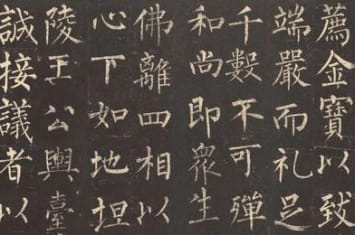 薦金寶以致
端嚴而礼足
千數不可殫
和尚即衆生
佛離四相以
心下如地坦
陵王公輿臺
誠接議者以